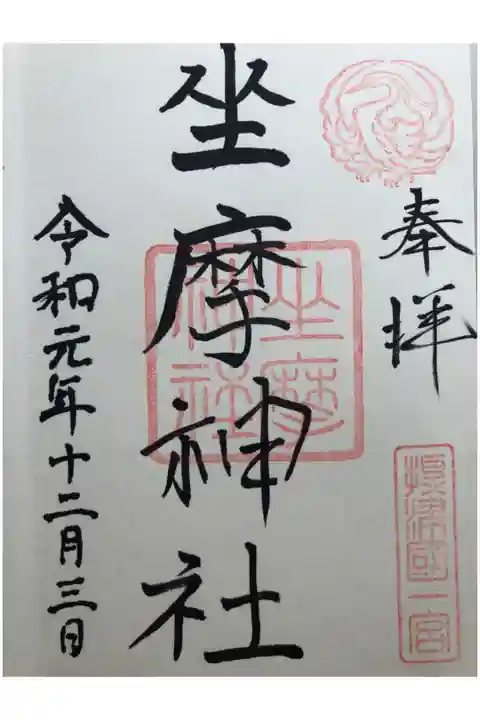 奉拝
摂津国一宮
坐摩神社
坐摩
神社
令和元年十二月三日